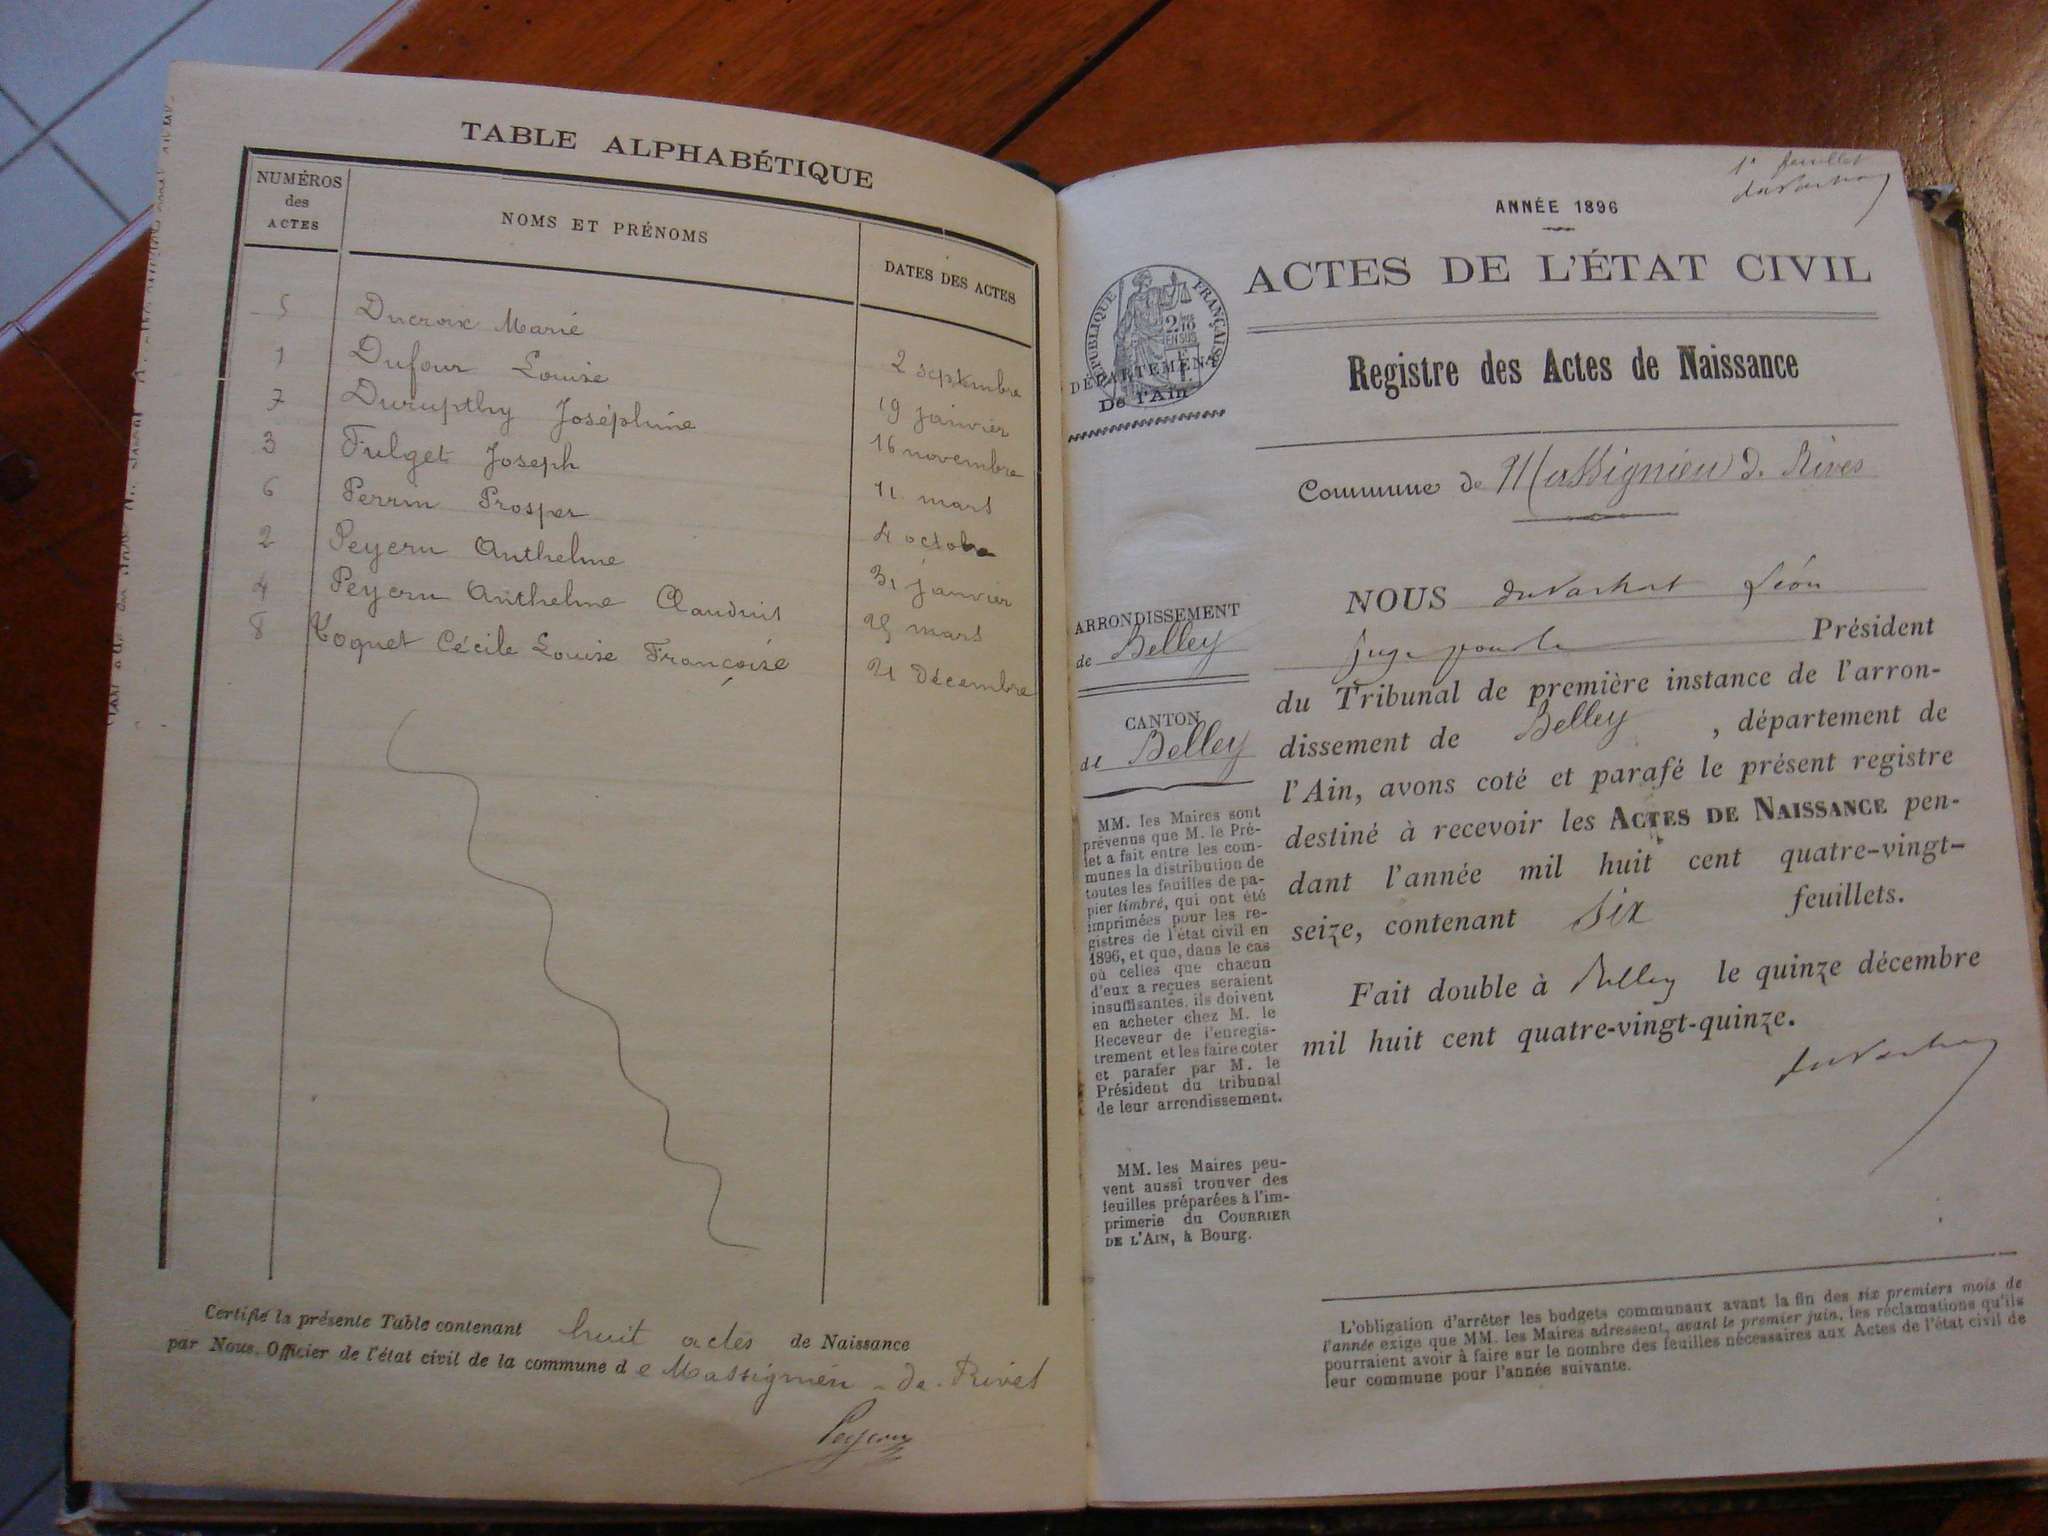 TABLE ALPHABÉTIQUE
NUMÉROS
des
ACTES
NOMS ET PRÉNOMS
DATES DES ACTES
5 Ducroix Marie 2 septembre
1 Dufour Louise 19 janvier
7 Durupthy Joséphine 16 novembre
3 Fulget Joseph 11 mars
6 Perrin Prosper 4 octobre
2 Peyern Anthelme 31 janvier
4 Peyern Anthelme Claudius 25 mars
8 Toquet Cécile Louise Françoise 21 Décembre
Certifié la présente Table contenant huit actes de Naissance
par Nous, Officier de l'état civil de la commune de Massignieu-de-Rives
1er feuillet
ANNÉE 1896
ACTES DE L'ÉTAT CIVIL
RÉPUBLIQUE FRANÇAISE
DÉPARTEMENT
De l'Ain
Registre des Actes de Naissance
Commune de Massignieu d. Rives
NOUS Léon
juge pour le Président
du Tribunal de première instance de l'arron-
dissement de Belley, département de
l'Ain, avons coté et parafé le présent registre
destiné à recevoir les ACTES DE NAISSANCE pen-
dant l'année mil huit cent quatre-vingt-
seize, contenant six feuillets.
Fait double à Belley le quinze décembre
mil huit cent quatre-vingt-quinze.
ARRONDISSEMENT
de Belley
CANTON
de Belley
MM. les Maires sont
prévenus que M. le Pré-
fet a fait entre les com-
munes la distribution de
toutes les feuilles de pa-
pier timbré, qui ont été
imprimées pour les re-
gistres de l'état civil en
1896, et que, dans le cas
où celles que chacun
d'eux a reçues seraient
insuffisantes, ils doivent
en acheter chez M. le
Receveur de l'enregis-
trement et les faire coter
et parafer par M. le
Président du tribunal
de leur arrondissement.
MM. les Maires peu-
vent aussi trouver des
feuilles préparées à l'im-
primerie du COURRIER
DE L'AIN, à Bourg.
L'obligation d'arrêter les budgets communaux avant la fin des six premiers mois de
l'année exige que MM. les Maires adressent, avant le premier juin, les réclamations qu'ils
pourraient avoir à faire sur le nombre des feuilles nécessaires aux Actes de l'état civil de
leur commune pour l'année suivante.